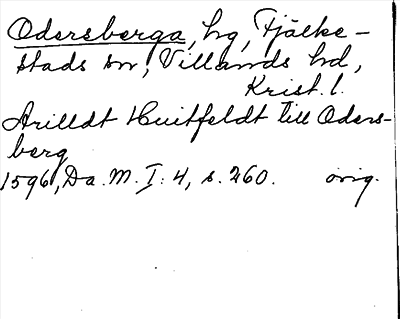 Odersberga, hg, Fjälke-
stads sn, Villands hd,
Krist. l.
Arilldt Huitfeldt till Oders-
berg
1596, Da. M. I: 4, s. 260. orig.